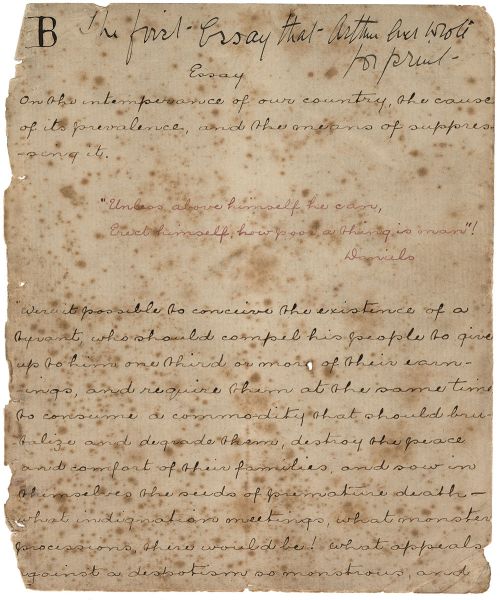 B
The first Essay that Arthur ever wrote
for print-
Essay
On the intemperance of our country, the cause
of its prevalence, and the means of suppres-
-sing it.
"Unless above himself he can,
Erect himself, how poor a thing is man"!
Daniels
"Were it possible to conceive the existence of a
tyrant, who should compel his people to give
up to him one third or more of their earn-
-ings, and require them at the same time
to consume a commodity that should bru-
talize and degrade them, destroy the peace
and comfort of their families, and sow in
themselves the seeds of premature death—
what indignation meetings, what monster
processions, there would be! What appeals
against a despotism so monstrous, and